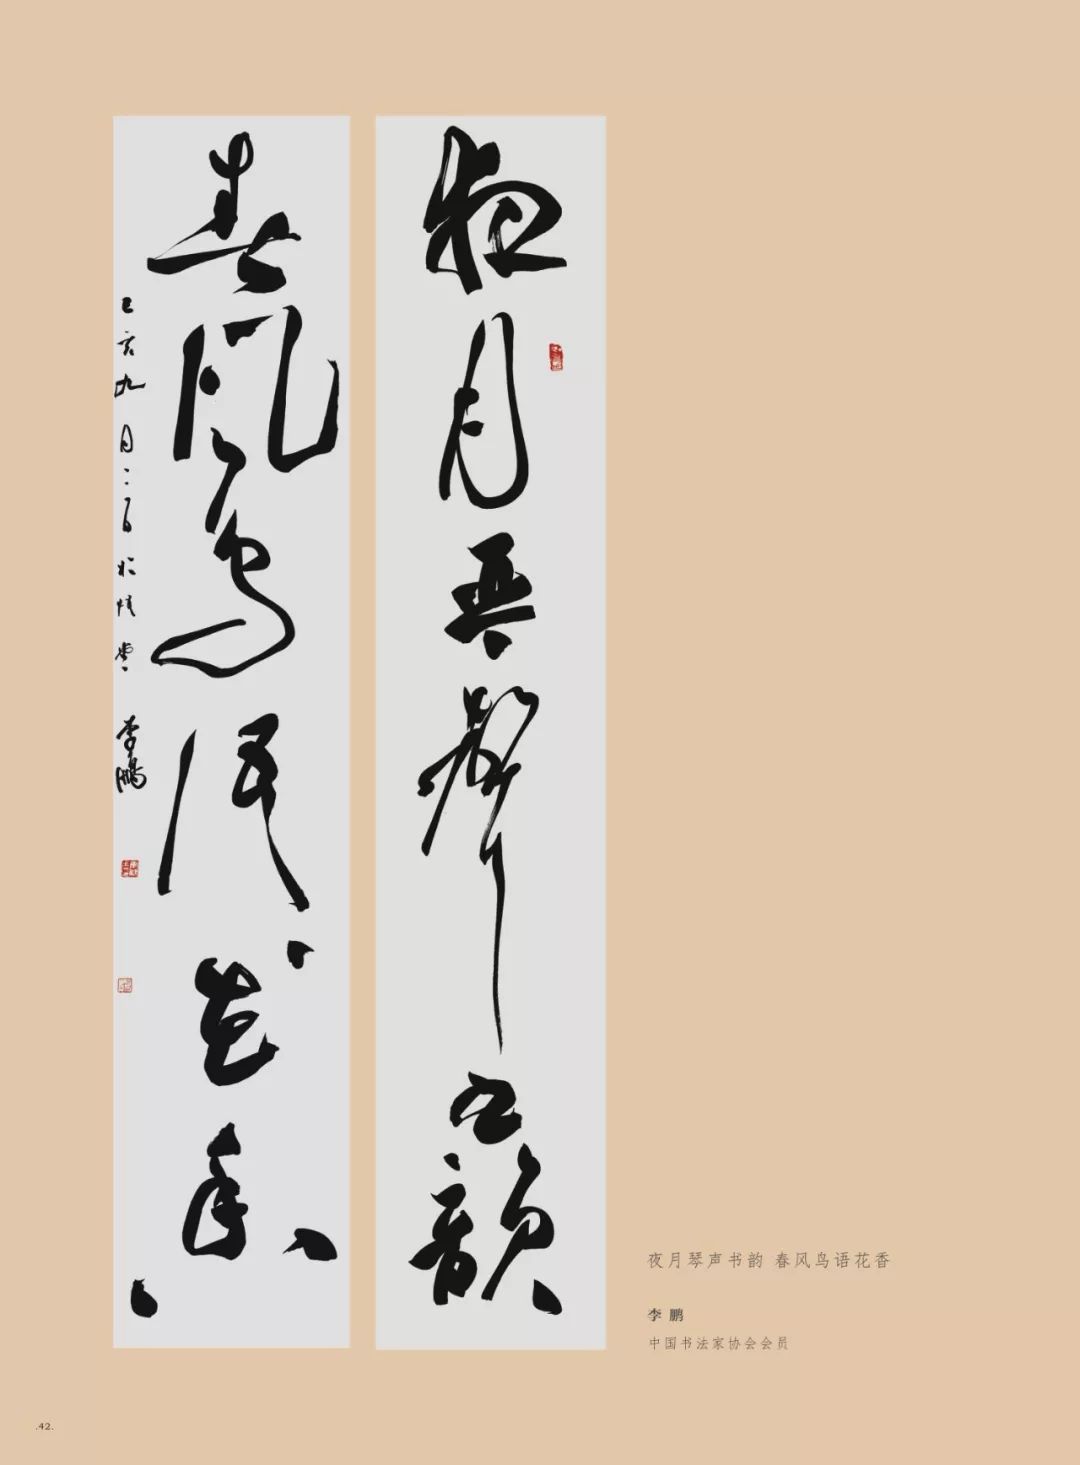 夜月琴聲书韻
春風鳥語花香
己亥九月二日於
堂
李鵬
夜月琴声书韵 春风鸟语花香
李 鹏
中国书法家协会会员
.42.